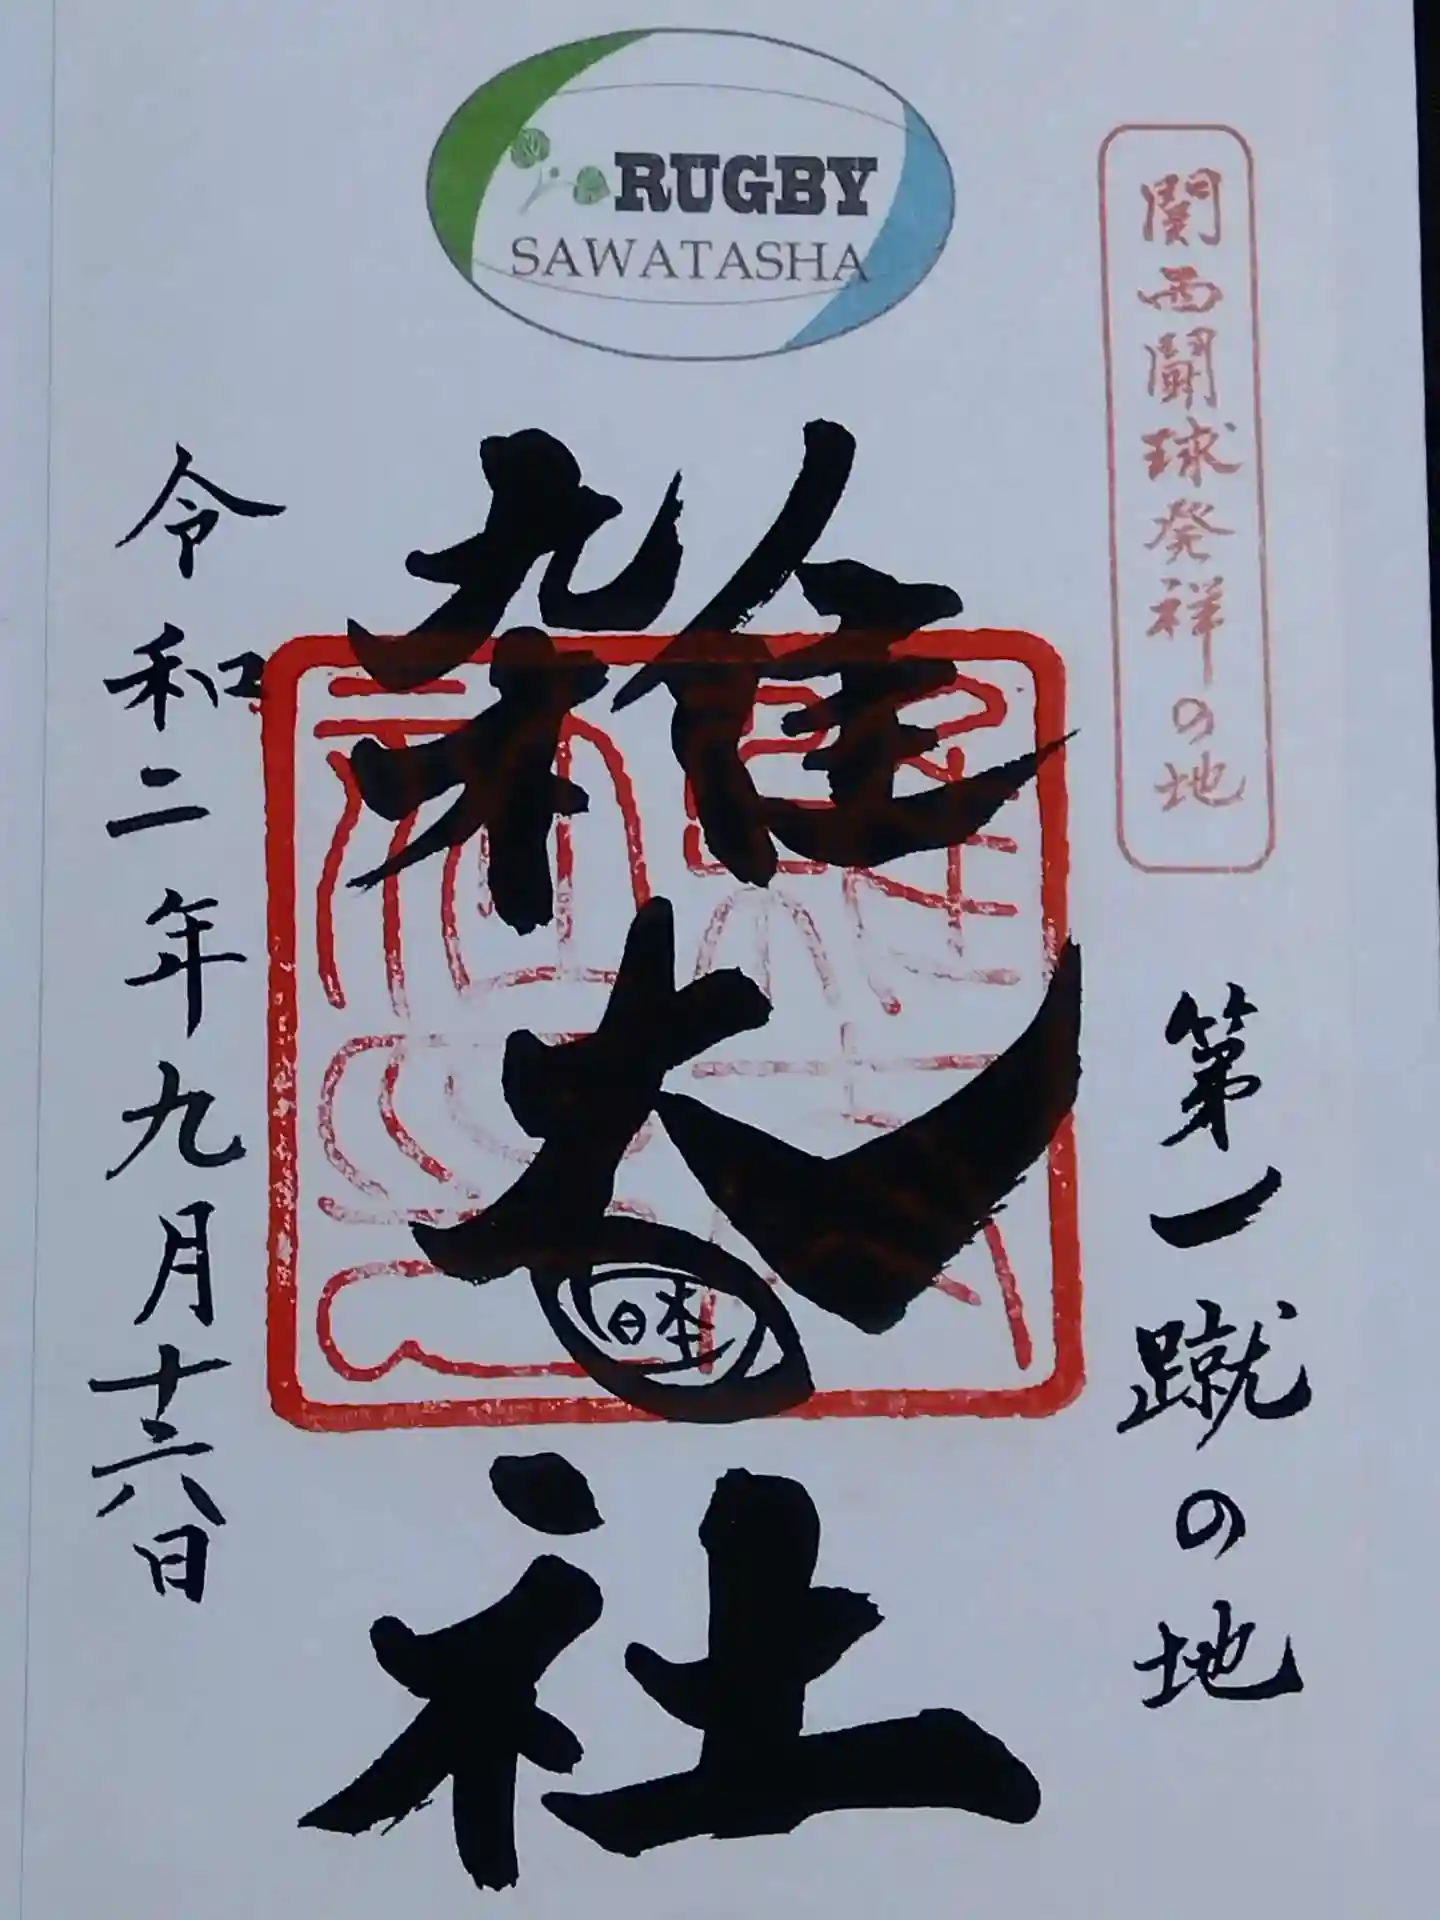 RUGBY
SAWATASHA
関西闘球発祥の地
第一蹴の地
雑太社
日本
令和二年九月十六日